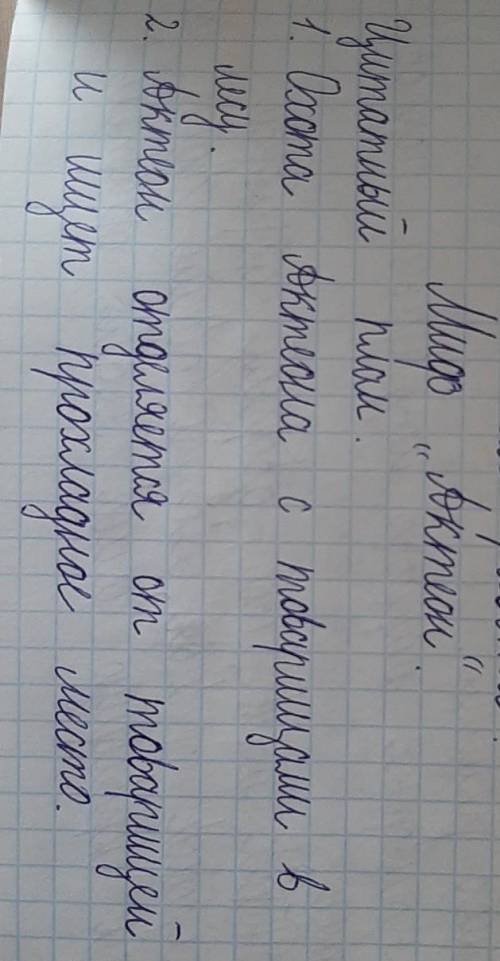 Миф "Актеон".
Цитатный план.
1. Охота Актеона с товарищами в
лесу.
2. Актеон отделяется от товарищей
и ищет прохладное место.